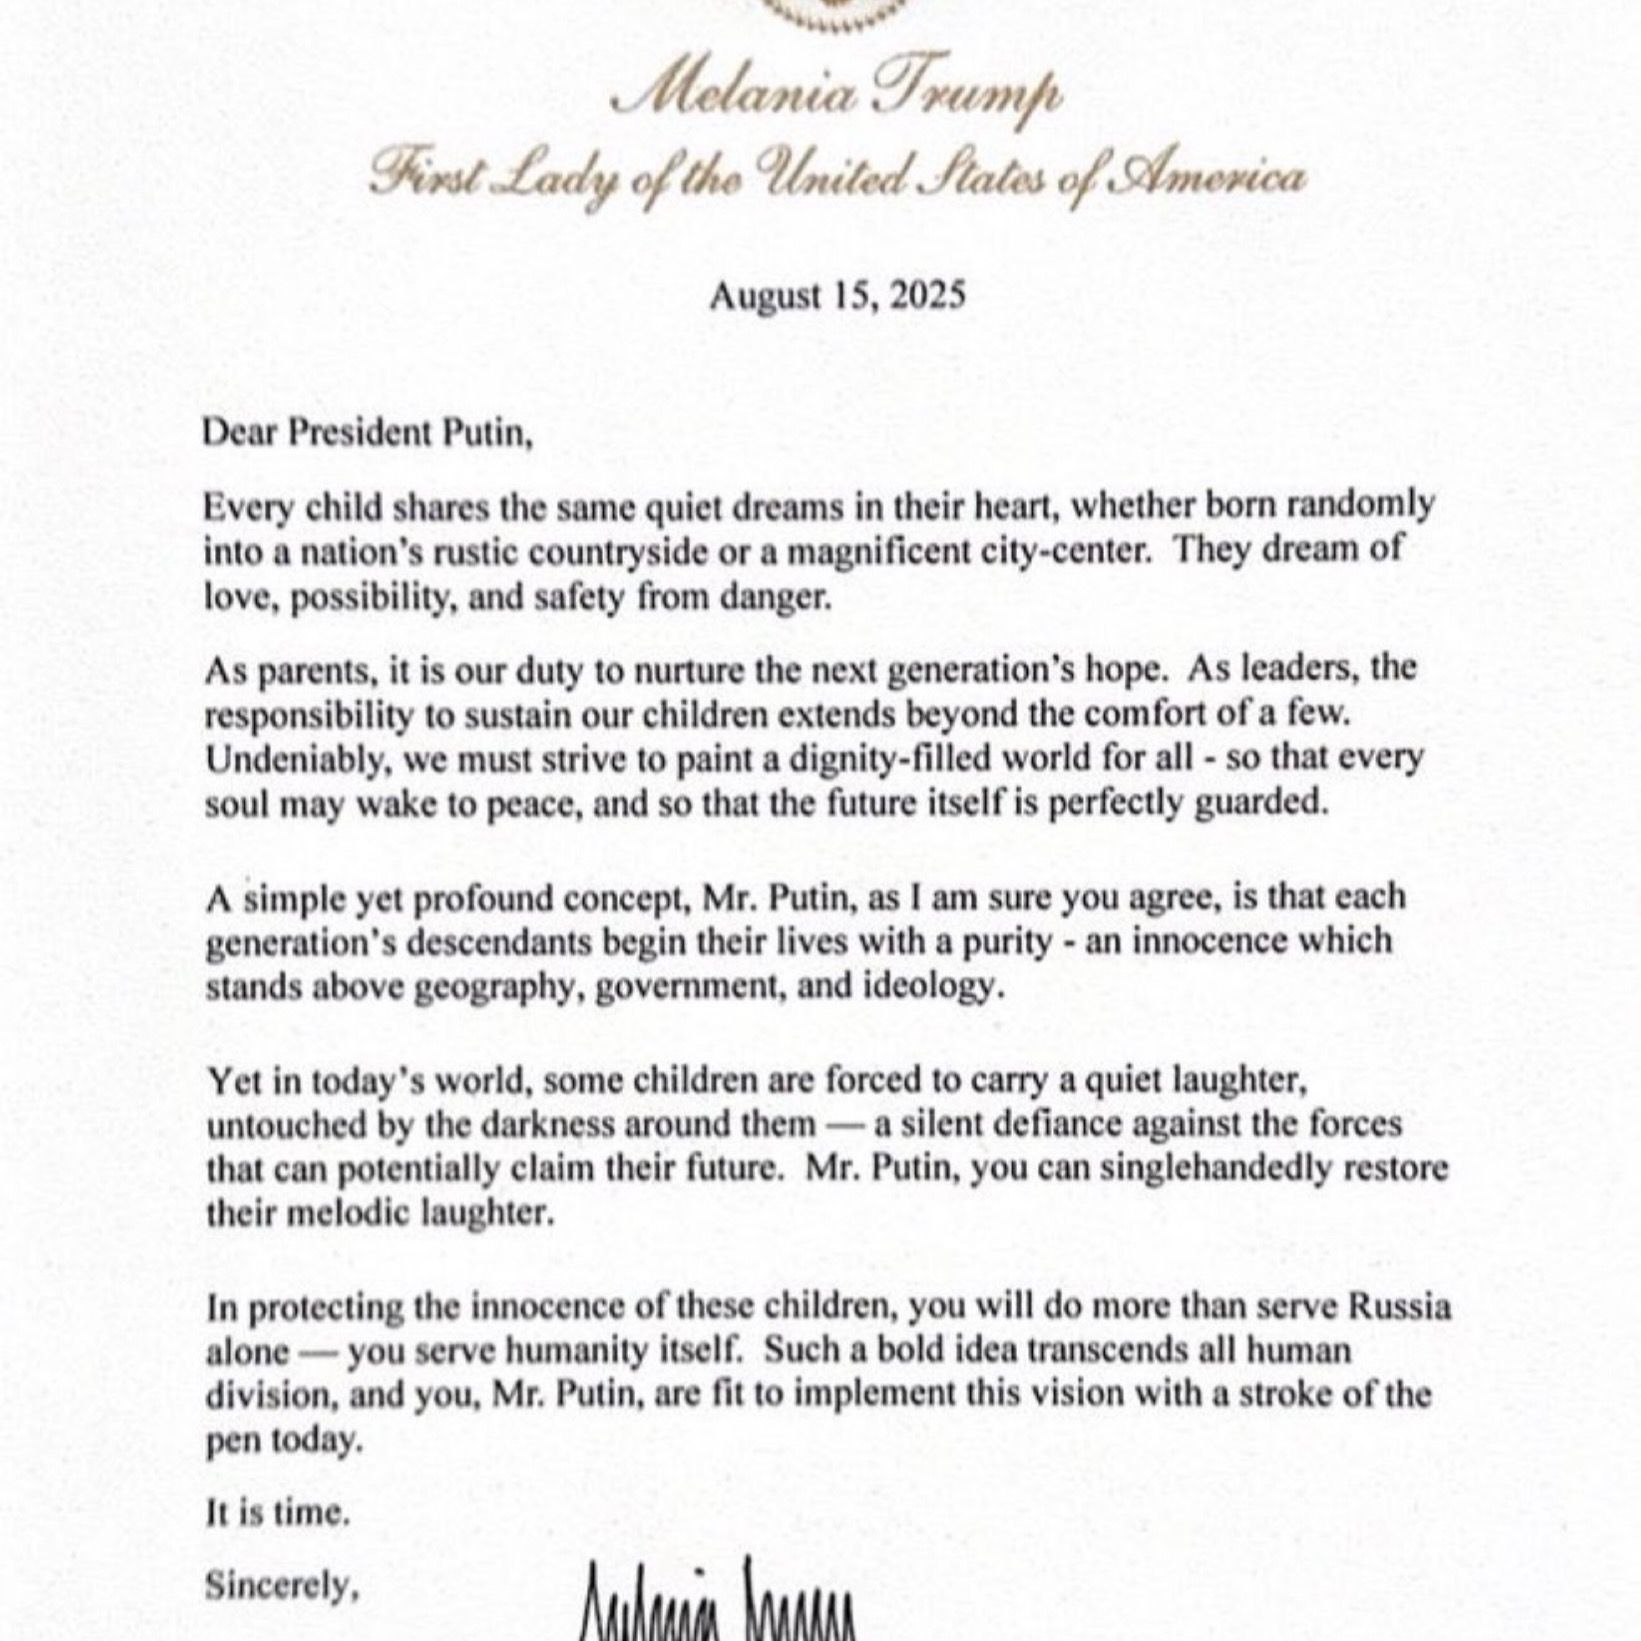 Melania Trump
First Lady of the United States of America
August 15, 2025
Dear President Putin,
Every child shares the same quiet dreams in their heart, whether born randomly
into a nation’s rustic countryside or a magnificent city-center.  They dream of
love, possibility, and safety from danger.
As parents, it is our duty to nurture the next generation’s hope.  As leaders, the
responsibility to sustain our children extends beyond the comfort of a few.
Undeniably, we must strive to paint a dignity-filled world for all - so that every
soul may wake to peace, and so that the future itself is perfectly guarded.
A simple yet profound concept, Mr. Putin, as I am sure you agree, is that each
generation’s descendants begin their lives with a purity - an innocence which
stands above geography, government, and ideology.
Yet in today’s world, some children are forced to carry a quiet laughter,
untouched by the darkness around them — a silent defiance against the forces
that can potentially claim their future.  Mr. Putin, you can singlehandedly restore
their melodic laughter.
In protecting the innocence of these children, you will do more than serve Russia
alone — you serve humanity itself.  Such a bold idea transcends all human
division, and you, Mr. Putin, are fit to implement this vision with a stroke of the
pen today.
It is time.
Sincerely,
Melania Trump